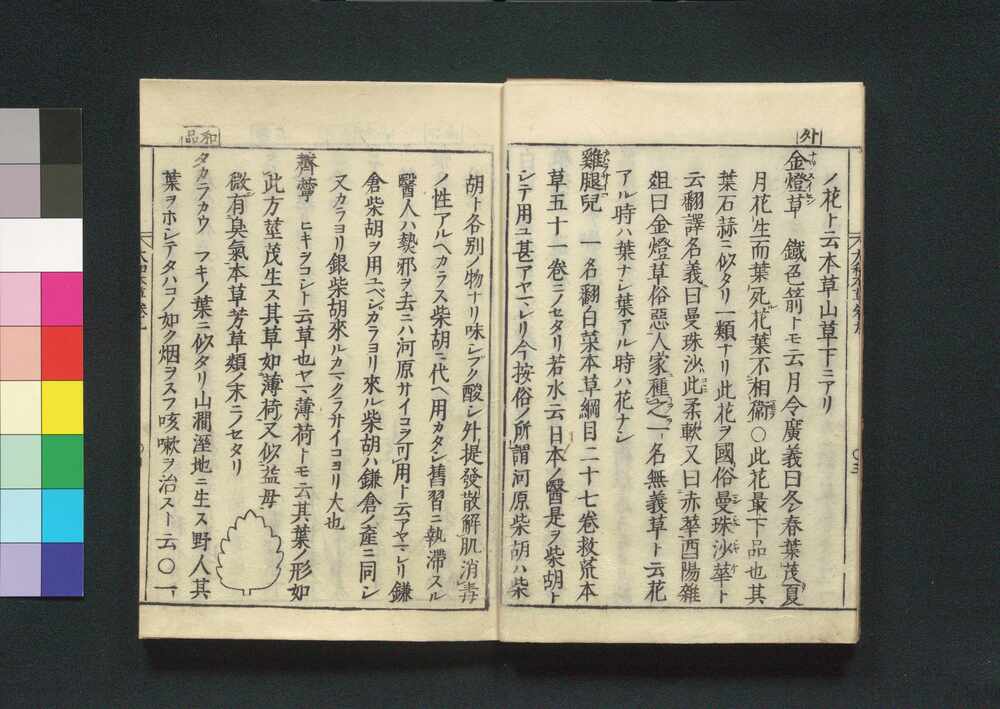 外
ノ花ト云本草山草下ニアリ
金燈草 鐡色箭トモ云月令廣義曰冬春葉茂夏
月花生而葉死花葉不相衞〇此花最下品也其
葉石蒜ニ似タリ一類ナリ此花ヲ國俗曼珠沙華ト
云翻譯名義曰曼珠沙此柔軟又曰赤華酉陽雜
爼曰金燈草俗惡人家種之一名無義草ト云花
アル時ハ葉ナシ葉アル時ハ花ナシ
雞腿兒 一名翻白菜本草綱目二十七巻救荒本
草五十一巻ニノセタリ若水云日本ノ醫是ヲ柴胡ト
シテ用ユ甚アヤマレリ今按俗ノ所謂河原柴胡ハ柴
和品
胡ト各別ノ物ナリ味シブク酸シ外提發散解肌消毒
ノ性アルヘカラス柴胡ニ代ヘ用カタシ舊習ニ執滯スル
醫人ハ𤍠邪ヲ去ニハ河原サイコヲ可用ト云アヤマレリ鎌
倉柴胡ヲ用ユベシカラヨリ來ル柴胡ハ鎌倉ノ産ニ同シ
又カラヨリ銀柴胡來ルカマクラサイコヨリ大也
薺薴 ヒキヲコシト云草也ヤマ薄荷トモ云其葉ノ形如
此方莖茂生ス其草如薄荷又似益母
微有臭氣本草芳草類ノ末ニノセタリ
タカラカウ フキノ葉ニ似タリ山澗溼地ニ生ス野人其
葉ヲホシテタハコノ如ク烟ヲスフ咳嗽ヲ治スト云〇一